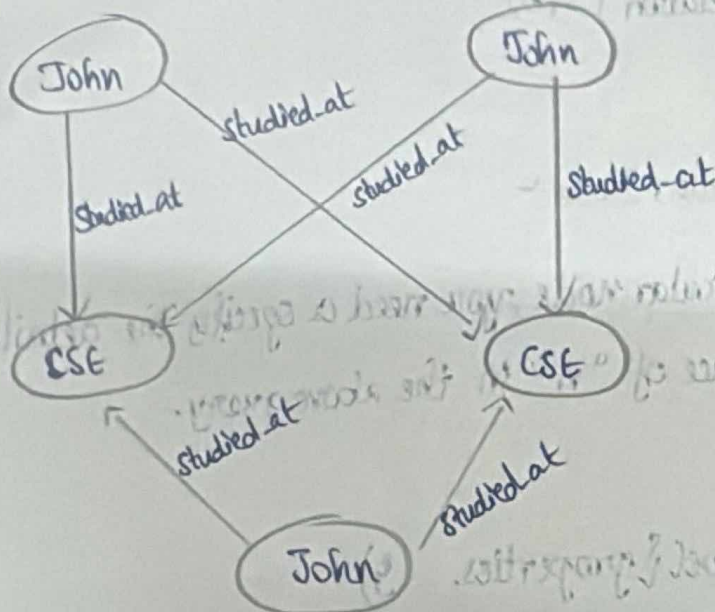 John
John
studied_at
studied_at
Studied_at
Studied_at
CSE
CSE
studied_at
studied_at
John